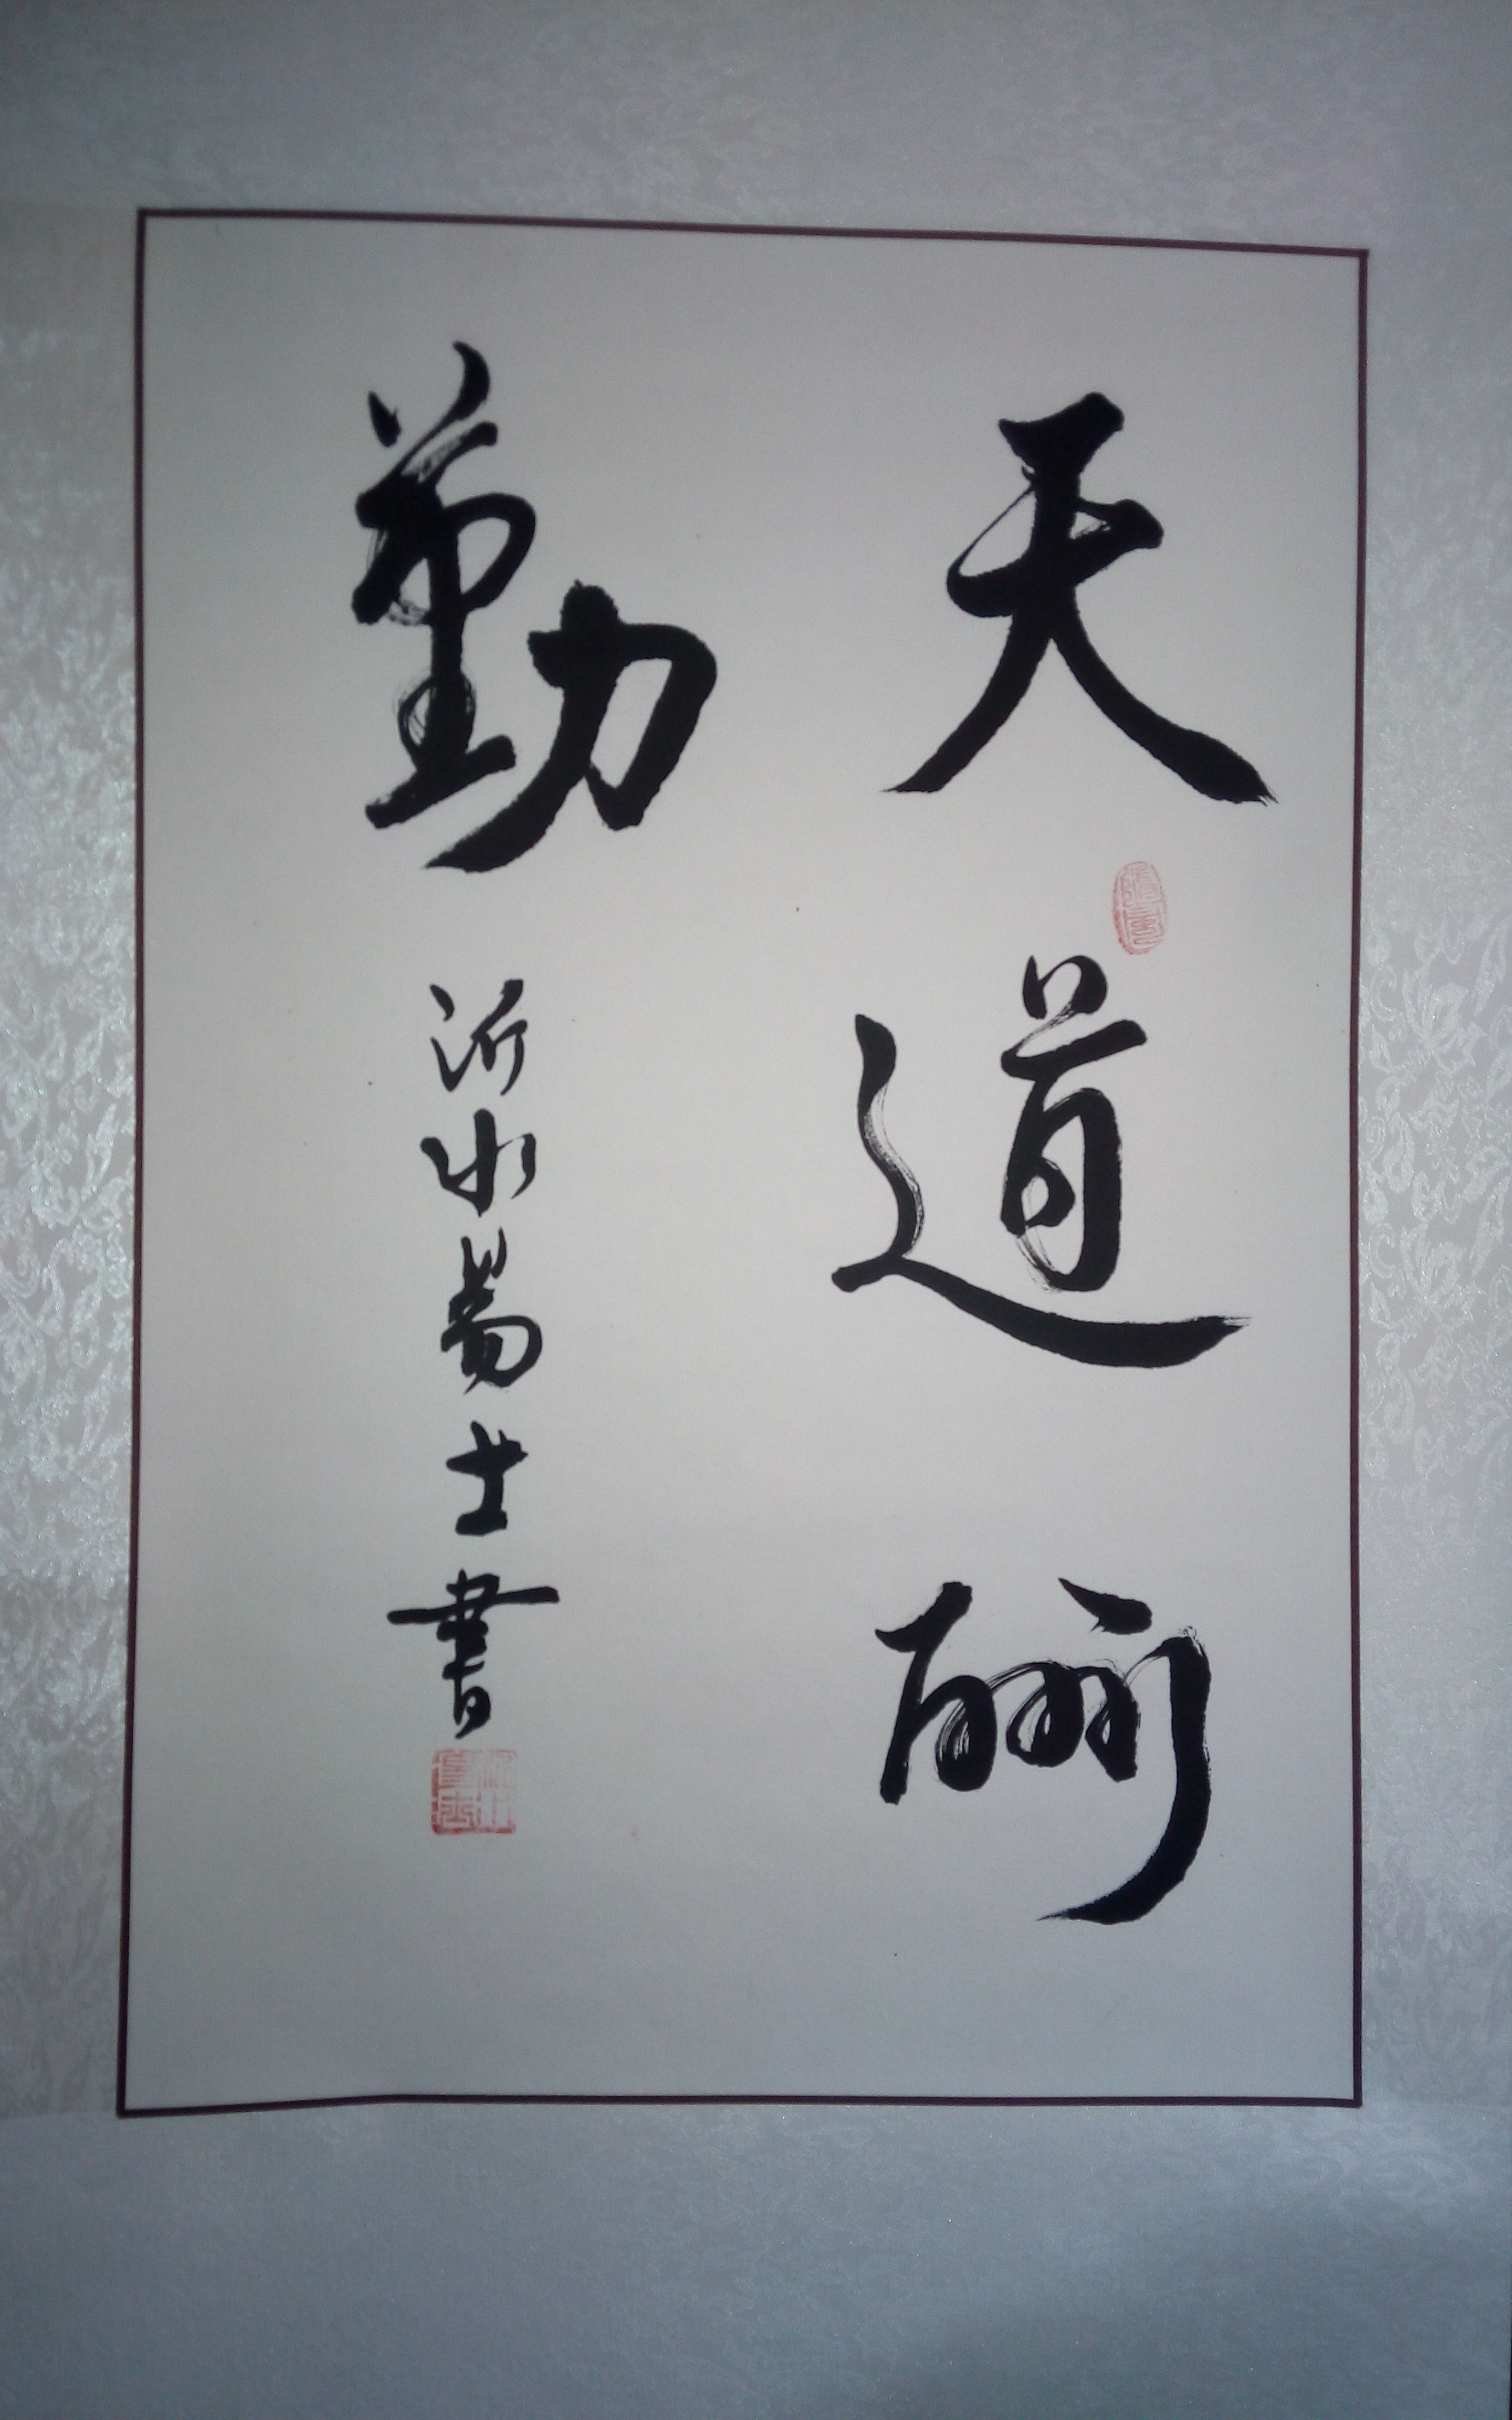 天道酬
勤
沂水士書